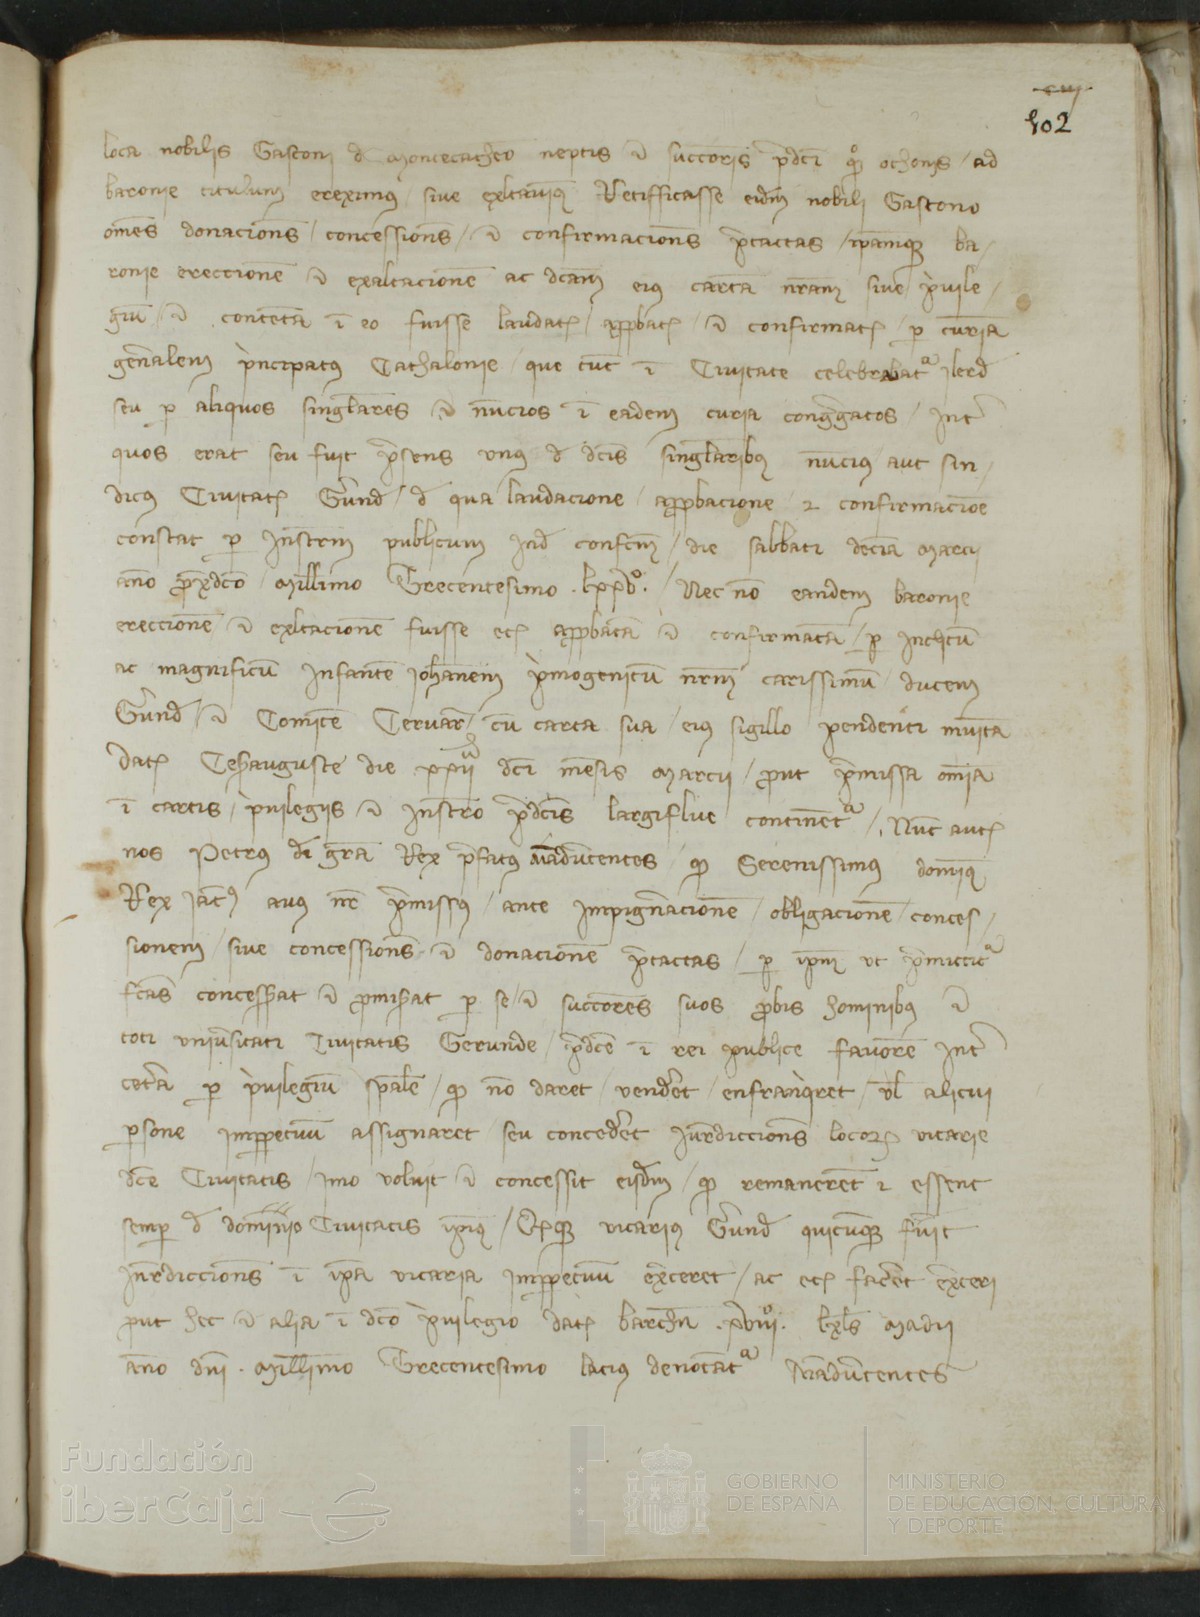 ciij
102
loca nobilis Gastoni d montecatheo neptis et succoris pdci qo othonis / ad
baronie titulum ereximus / sive exltavimus Retifficasse eidm nobili Gastono
omes donacions / concessions / et confirmacions ptactas / ipamq ba /
ronie ereccione et exaltacione ac dcam eius carta nram sive privile /
giu / et contenta i eo fuisse laudat / appbat / et confirmat / p curia
genalem principatus Cathalonie / que tuc i Civitate celebrabat ilerd
seu p aliquos singlares et nucios i eadem curia congegatos / Int
quos erat seu fuit psens unus d dcis singlaribus nucius / aut sin /
dicus Civitat Gerund / d qua laudacione / appbacione et confirmacioe
constat p Instrm publicum Ind confcm / die sabbati decia marcii
ano pxdco millimo Trecentesimo . lxxvo . / Nec no eandem baronie
ereccione et exltacione fuisse ec appbata et confirmata / p Inclitu
ac magnificu Infante Johanem pmogenitu nrm carissimu ducem
Gerund / et Comite Cervar / cu carta sua / eius sigillo pendenti muita
dat Cesauguste die xxii dci mesis marcii / put pmissa omia
i cartis / privilegiis et Instro pdcis largiflue continet / Nuc aut
nos Petrus dei gra Rex pfatus Aadutentes / q Serenissimus dominus
Rex Jac avus nr pmissus / ante Impignacione / obligacione / conces /
sionem / sive concessions et donacione ptactas / p ipm ut pmittit
fcas concesserat et promiserat p se et succores suos pbis hominibus et
toti univsitati Civitatis Gerunde / pdce i rei publice favore Int
cetera p privilegiu spale / q no daret / venderet / enfranqret / vl alicui
psone Imppetuu assignaret / seu concederet Jurdiccions locor vicarie
dce Civitatis / imo voluit et concessit eisdm / q remaneret et essent
semp d dominio Civitatis ipius / Et q vicarius Gerund quicuq fuit
Jurdiccions i ipa vicaria Imppetuu exceret / ac ec faceret exceri
put hec et alia i dco privilegio dat barchn . xviiio . kls madii
ano dni . millimo Trecentesimo lacius denotat Aadutentes
Fundación
iberCaja
GOBIERNO
DE ESPAÑA
MINISTERIO
DE EDUCACIÓN, CULTURA
Y DEPORTE